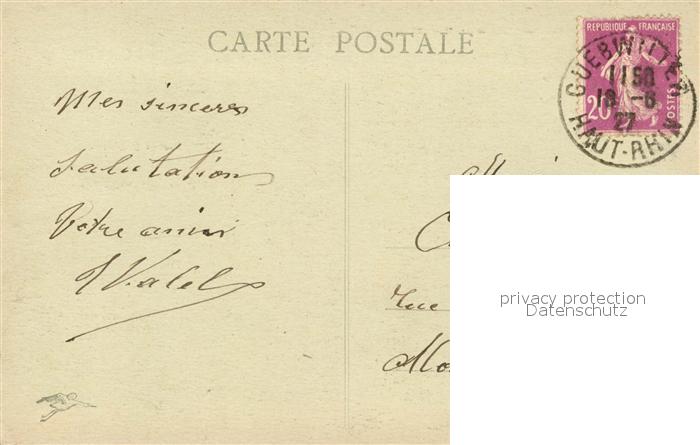 CARTE POSTALE
REPUBLIQUE FRANÇAISE
20
POSTES
GUEBWILLER
1150
18 -6
27
HAUT-RHIN
Mes sinceres
salutations
Votre ami
Rue
privacy protection
Datenschutz